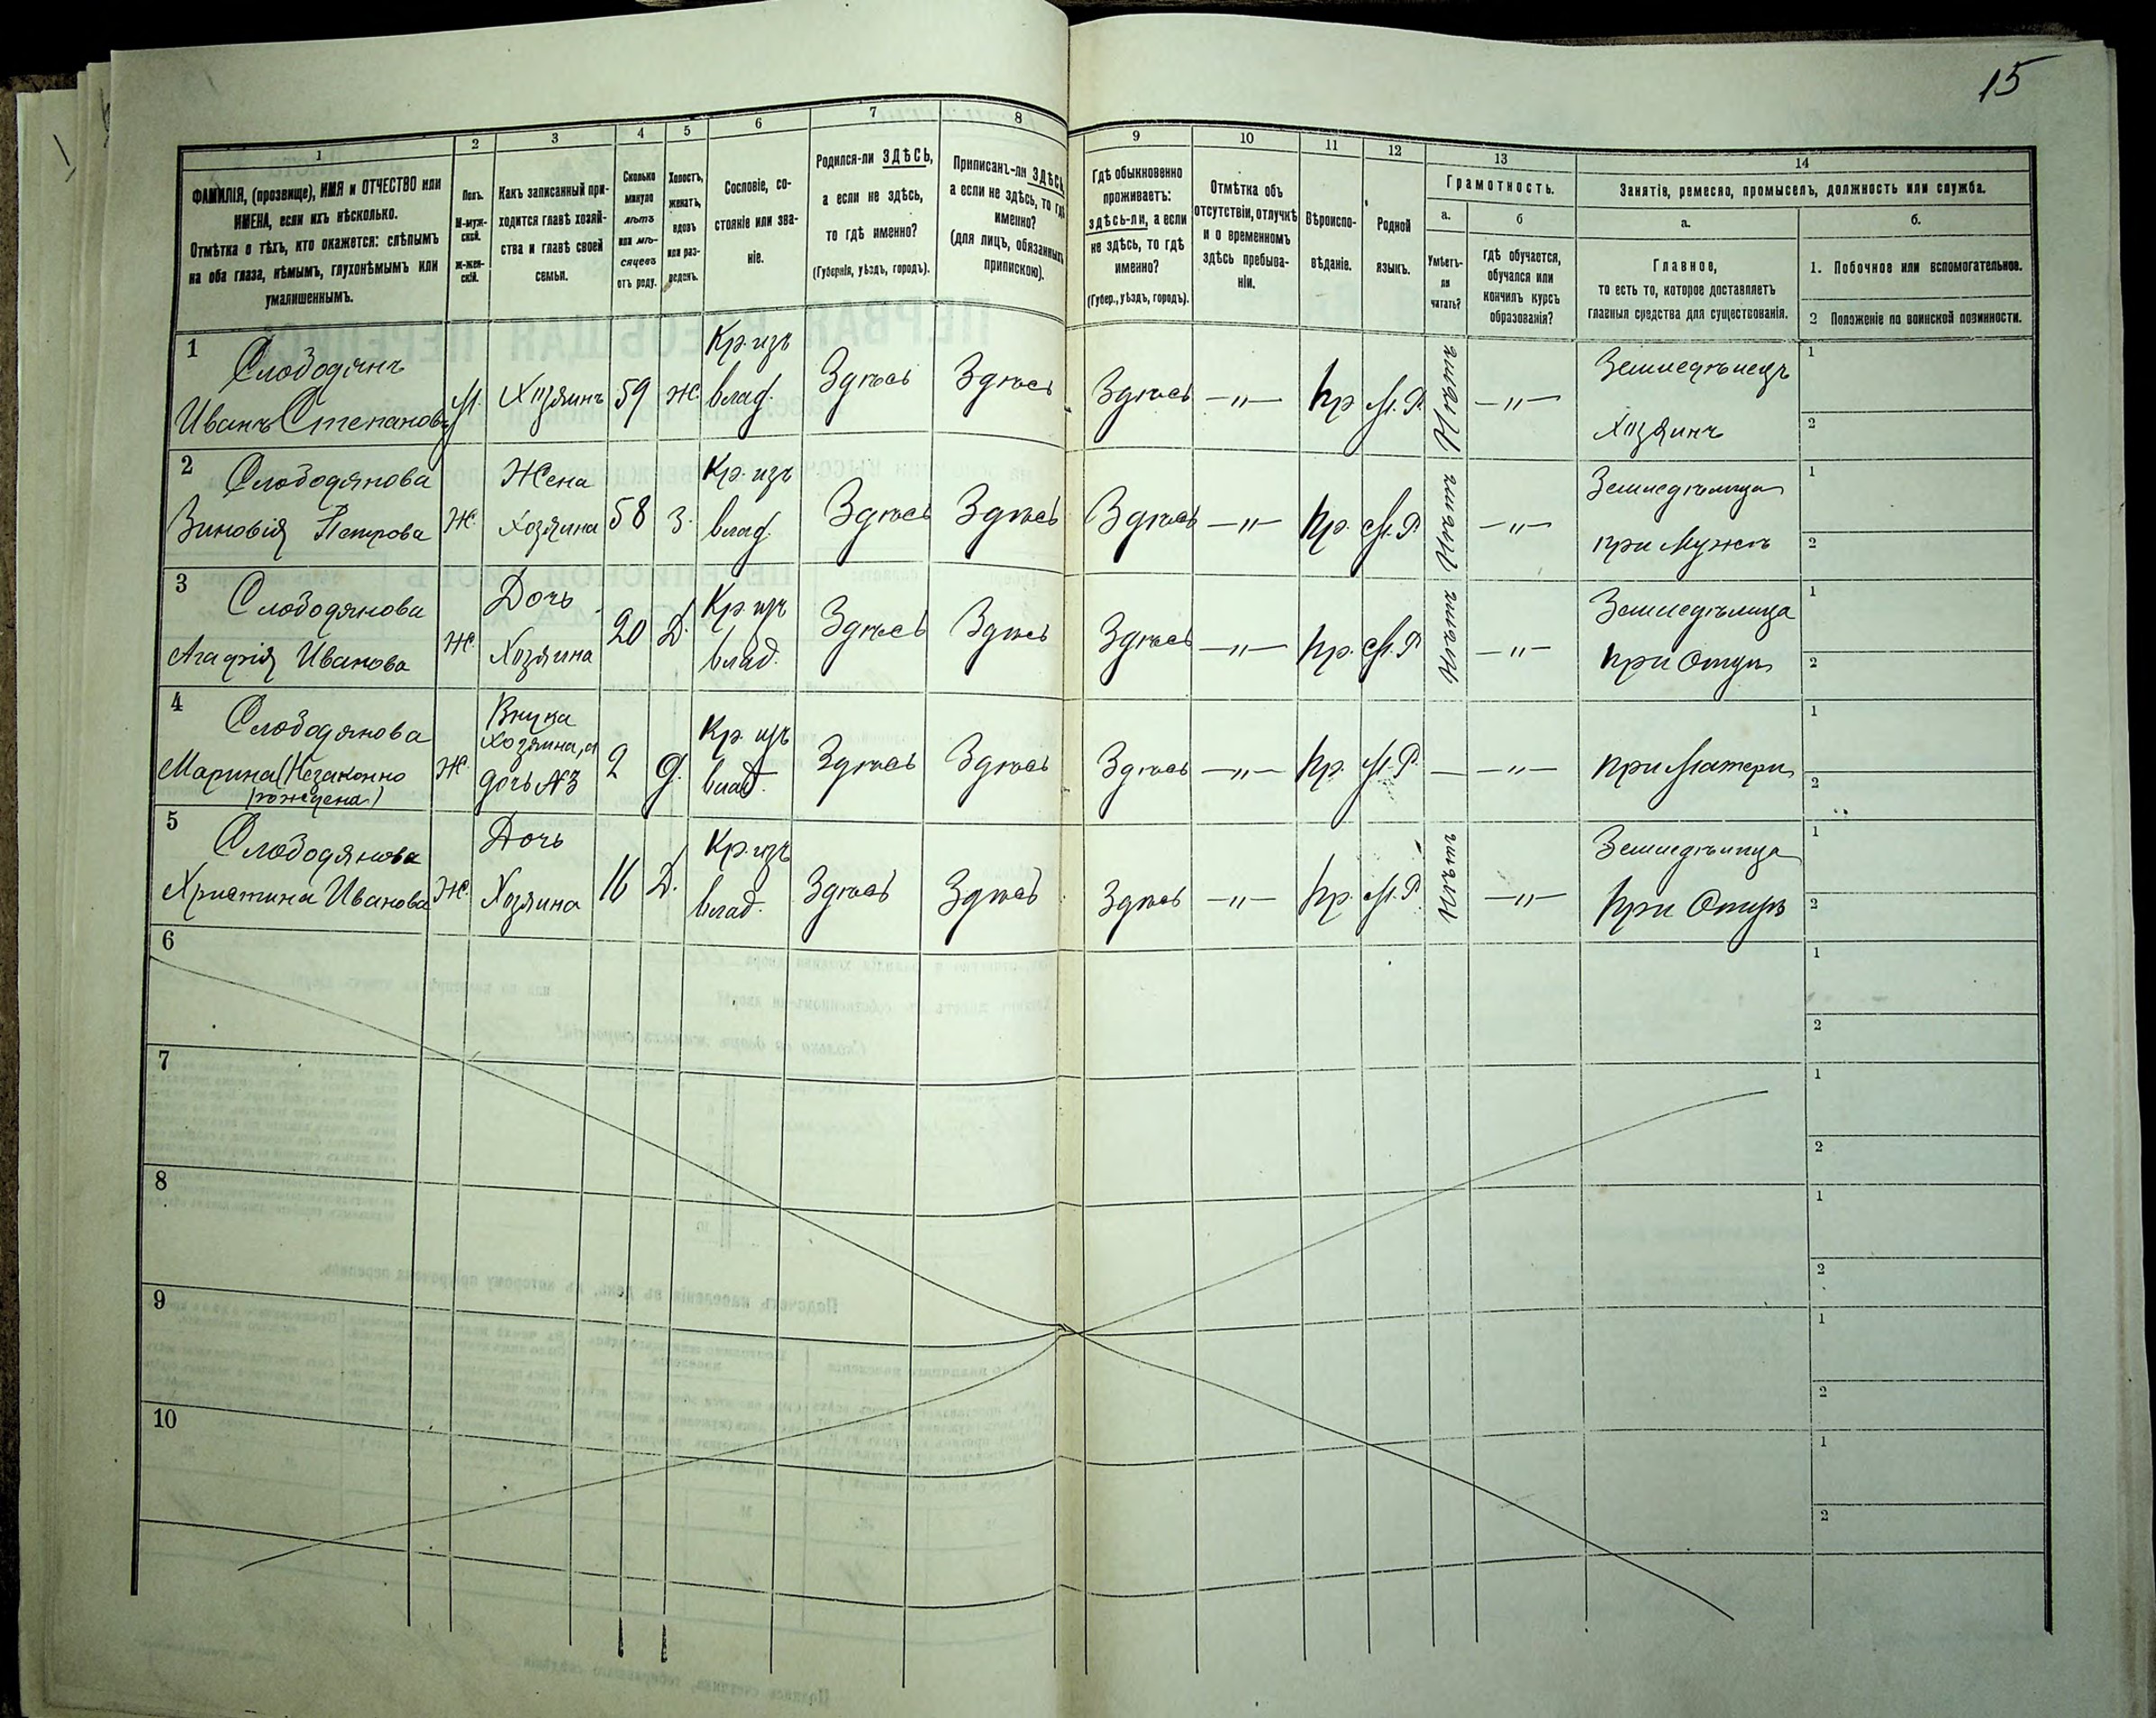 15
1
2
3
4
5
6
7
8
9
10
11
12
13
14
ФАМИЛІЯ, (прозвище), ИМЯ и ОТЧЕСТВО или
ИМЕНА, если ихъ нѣсколько.
Отмѣтка о тѣхъ, кто окажется: слѣпымъ
на оба глаза, нѣмымъ, глухонѣмымъ или
умалишеннымъ.
Полъ.
М-муж-
ской.
ж-жен-
скій.
Какъ записанный при-
ходится главѣ хозяй-
ства и главѣ своей
семьи.
Сколько
минуло
лѣтъ
или мѣ-
сяцевъ
отъ роду.
Холостъ,
женатъ,
вдовъ
или раз-
веденъ.
Сословіе, со-
стояніе или зва-
ніе.
Родился-ли ЗДѢСЬ,
а если не здѣсь,
то гдѣ именно?
(Губернія, уѣздъ, городъ).
Приписанъ-ли ЗДѢСЬ,
а если не здѣсь, то гдѣ
именно?
(для лицъ, обязанныхъ
припискою).
Гдѣ обыкновенно
проживаетъ:
здѣсь-ли, а если
не здѣсь, то гдѣ
именно?
(Губер., уѣздъ, городъ).
Отмѣтка объ
отсутствіи, отлучкѣ
и о временномъ
здѣсь пребыва-
ніи.
Вѣроиспо-
вѣданіе.
Родной
языкъ.
Грамотность.
а.
б
Умѣетъ-
ли
читать?
гдѣ обучается,
обучался или
кончилъ курсъ
образованія?
Занятіе, ремесло, промыселъ, должность или служба.
а.
б.
Главное,
то есть то, которое доставляетъ
главныя средства для существованія.
1. Побочное или вспомогательное.
2 Положеніе по воинской повинности.
1 Слободянъ
Иванъ Степановъ
М. Хозяинъ 59 Ж.
Кр. изъ
влад.
Здѣсь Здѣсь Здѣсь —"— Пр М.Р. Нѣтъ —"—
Земледѣлецъ
Хозяинъ
1
2
2 Слободянова
Зиновія Петрова
Ж.
Жена
Хозяина
58 З.
Кр. изъ
влад.
Здѣсь Здѣсь Здѣсь —"— Пр. М.Р. —"—
Земледѣлица
при Мужѣ
1
2
3 Слободянова
Агафія Иванова
Ж.
Дочь
Хозяина
20 Д.
Кр. изъ
влад.
Здѣсь Здѣсь Здѣсь —"— Пр. М.Р. —"—
Земледѣлица
при Отцѣ
1
2
4 Слободянова
Марина (Незаконно
рождена)
Ж.
Внука
Хозяина, а
дочь №3
2 Д.
Кр. изъ
влад.
Здѣсь Здѣсь Здѣсь —"— Пр. М.Р. — —"—
при Матери
1
2
5 Слободянова
Христина Иванова
Ж.
Дочь
Хозяина
16 Д.
Кр. изъ
влад.
Здѣсь Здѣсь Здѣсь —"— Пр. М.Р. —"—
Земледѣлица
при Отцѣ
1
2
6
1
2
7
1
2
8
1
2
9
1
2
10
1
2